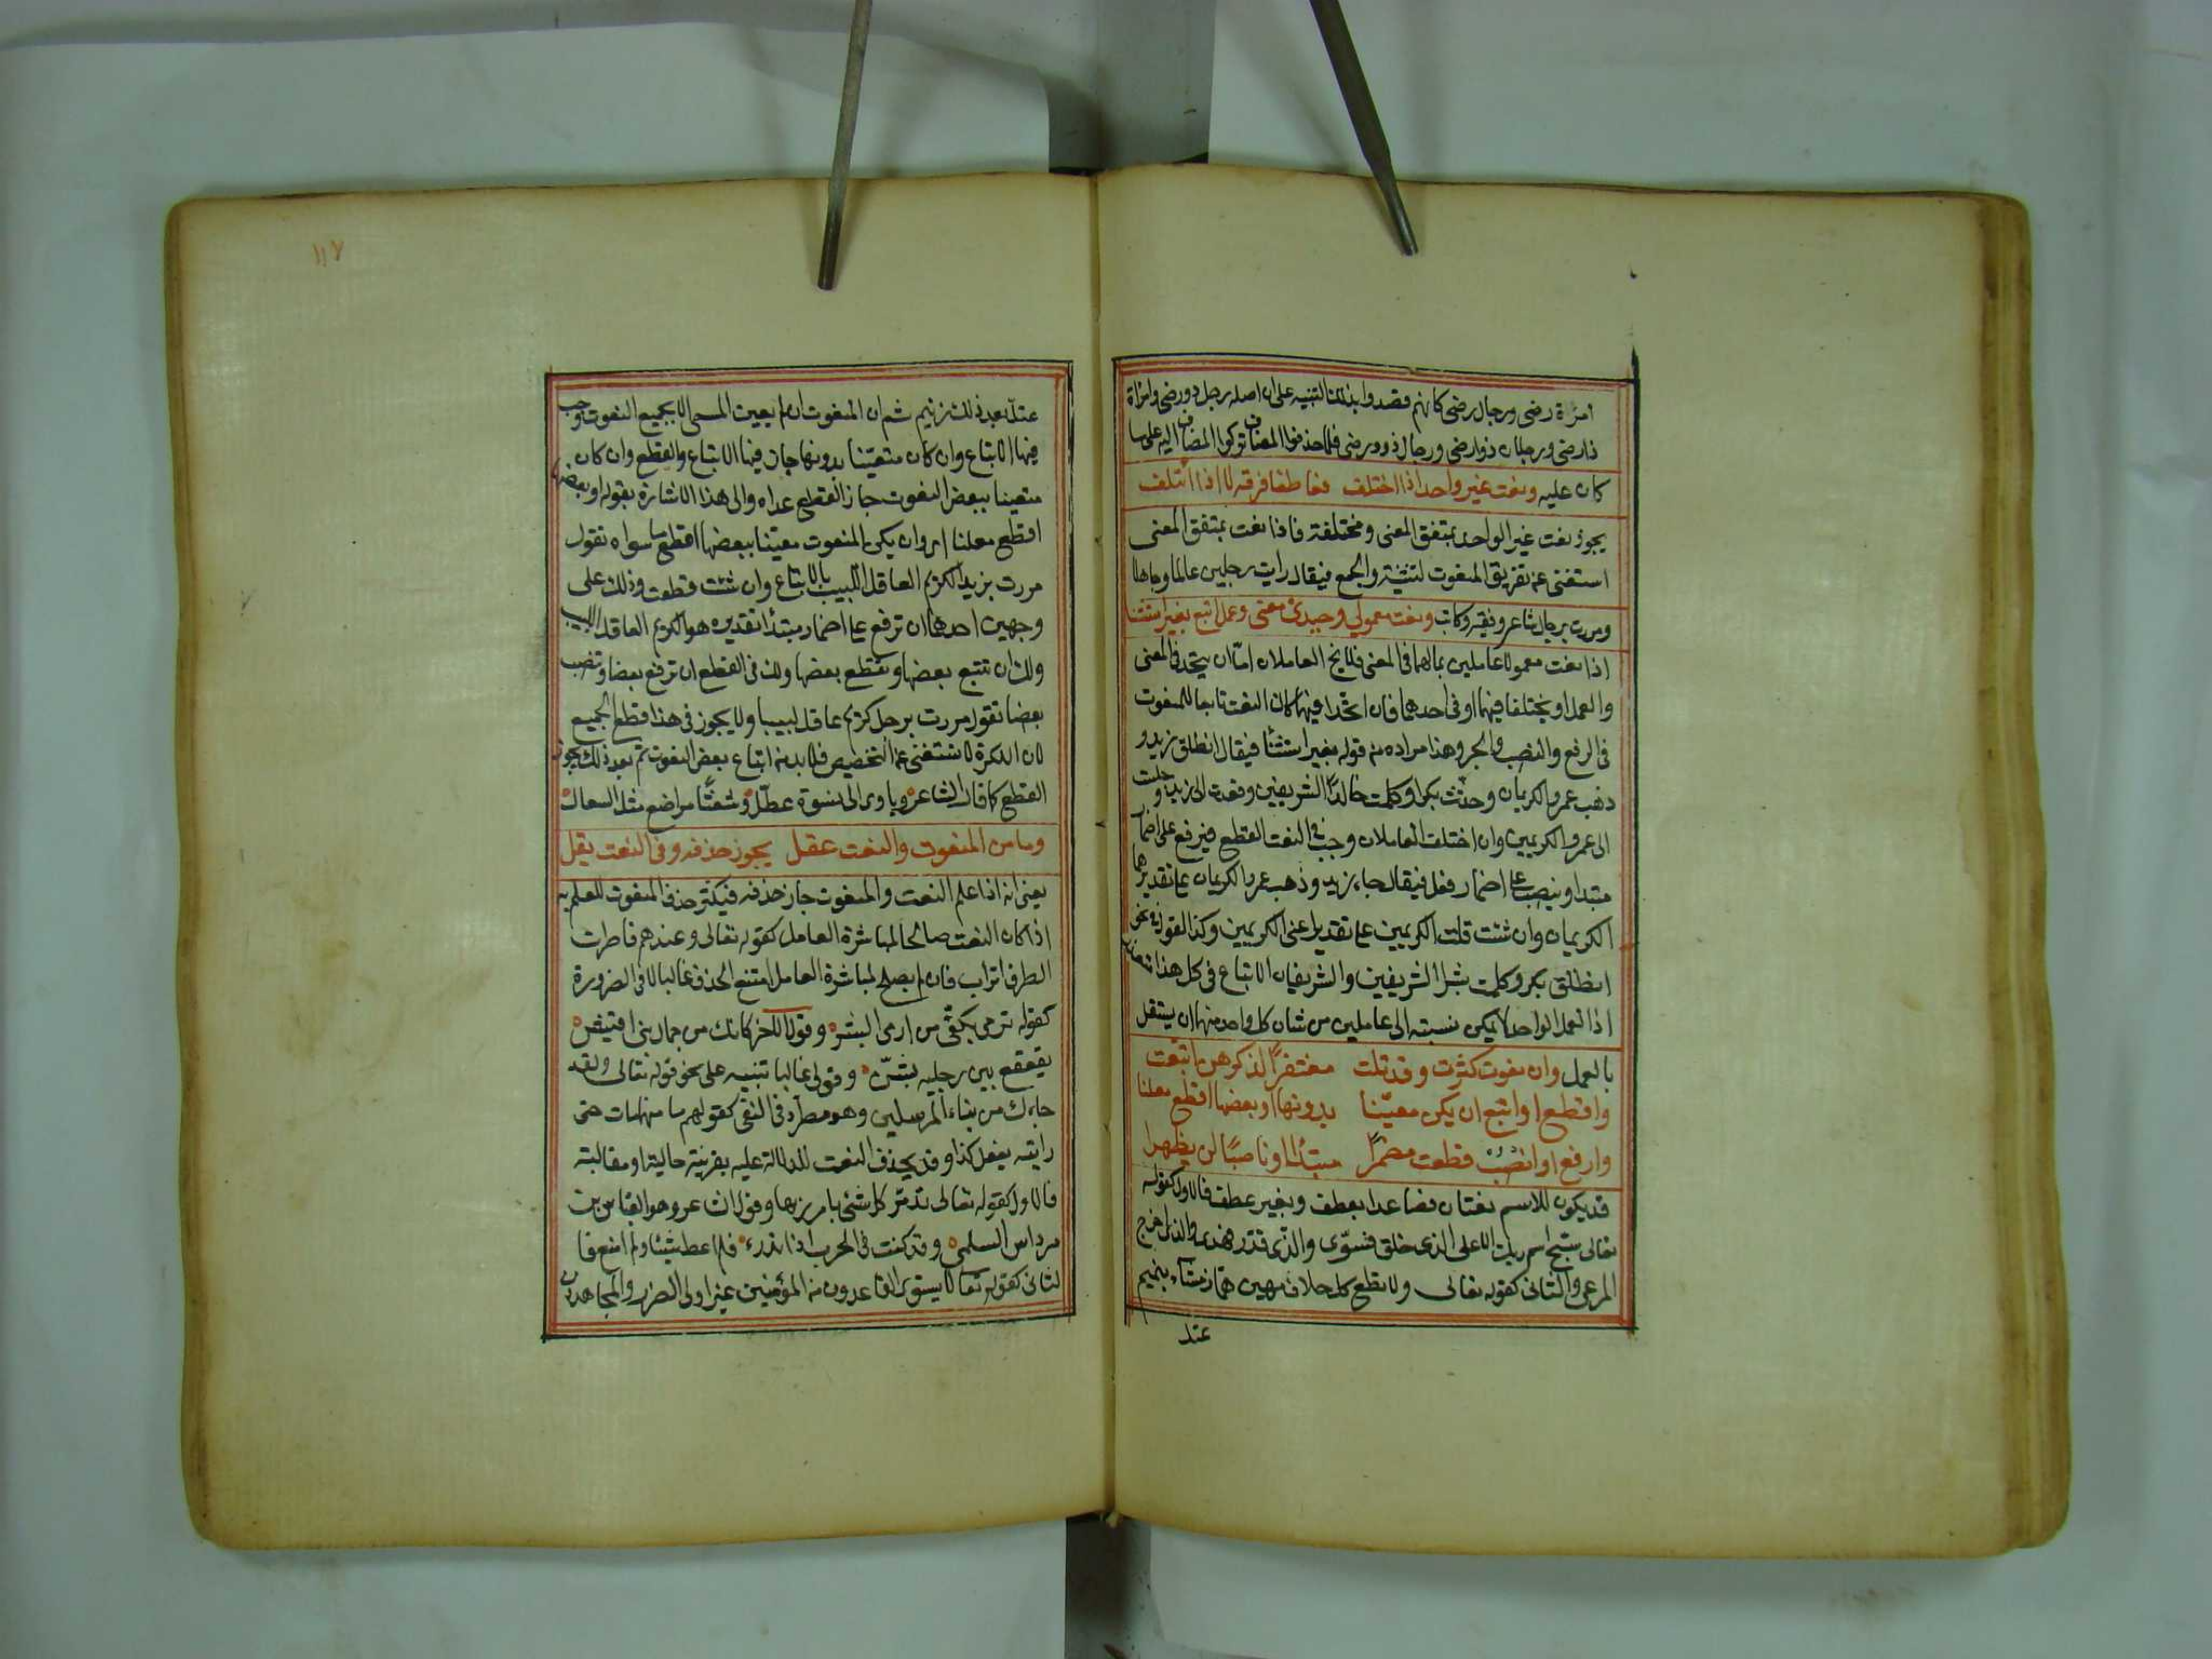 امرأة رضى ورجال رضى كانهم قصدوا بذلك التنبيه على ان اصله رجل ذو رضى وامراة
ذا رضى ورجلان ذوا رضى ورجال ذوو رضى فلما حذفوا المضاف تركوا المضاف اليه على ما
كان عليه ونعت غير واحد اذا اختلف فعاطفا فرقه لا اذا ائتلف
يجوز نعت غير الواحد بمتفق المعنى ومختلفة فاذا نعت بمتفق المعنى
استغنى عن تفريق المنعوت لتثنية والجمع فيقال رايت رجلين عالما وجاهلا
ومررت برجال شاعر وفقيه وكاتب ونعت معمولي وحيدي معنى وعمل اتبع بغير استثنا
اذا نعت معمولا عاملين بما لهما في المعنى فلا يخ العاملان اما ان يتحد في المعنى
والعمل او يختلفا فيهما او في احدهما فان اتحدا فيهما كان النعت تابعا للمنعوت
في الرفع والنصب والجر وهذا مراده من قوله بغير استثنا فيقال انطلق زيد و
ذهب عمرو الكريمان وحدثت بكرا وكلمت خالدا الشريفين وقعدت الى زيد وجلست
الى عمرو الكريمين وان اختلف العاملان وجب في النعت القطع فيرفع على اضمار
مبتدا وينصب على اضمار فعل فيقال جاء زيد وذهب عمرو الكريمان على تقدير هما
الكريمان وان شئت قلت الكريمين على تقدير اعنى الكريمين وكذا القول في نحو
انطلق بكر وكلمت بشرا الشريفين والشريفان الاتباع في كل هذا متعذر
اذ العمل الواحد لا يمكن نسبته الى عاملين من شان كل واحد منهما ان يستقل
بالعمل وان نعوت كثرت وقد تلت مفتقرا لذكرهن اتبعت
واقطع او اتبع ان يكن معينا بدونها او بعضها اقطع معلنا
وارفع او انصب ان قطعت مضمرا مبتدا او ناصبا لن يظهرا
قد يكون للاسم نعتان فصاعدا بعطف وبغير عطف فالاول كقوله
تعالى سبح اسم ربك الاعلى الذى خلق فسوى والذى قدر فهدى والذى اخرج
المرعى والثانى كقوله تعالى ولا تطع كل حلاف مهين هماز مشاء بنميم
عتل
١١٧
عتل بعد ذلك زنيم ثم ان المنعوت ان لم يعين المسمى الا بجميع النعوت وجب
فيها الاتباع وان كان متعينا بدونها جاز فيها الاتباع والقطع وان كان
متعينا ببعض النعوت جاز القطع عداه والى هذا الاشارة بقوله او بعضها
اقطع معلنا اى وان يكن المنعوت معينا ببعضها اقطع ما سواه تقول
مررت بزيد الكريم العاقل اللبيب بالاتباع وان شئت قطعت وذلك على
وجهين احدهما ان ترفع على اضمار مبتدا تقديره هو الكريم العاقل اللبيب
ولك ان تتبع بعضها وتقطع بعضها ولك في القطع ان ترفع بعضا وتنصب
بعضا تقول مررت برجل كريم عاقل لبيبا ولا يجوز في هذا قطع الجميع
لان النكرة لا تستغنى عن التخصيص فلا بد من اتباع بعض النعوت ثم بعد ذلك يجوز
القطع كما قال الشاعر ويا وى الى نسوة عطل وشعثا مراضع مثل السعال
وما من المنعوت والنعت عقل يجوز حذفه وفى النعت يقل
يعنى انه اذا علم النعت والمنعوت جاز حذفه فيكثر حذف المنعوت للعلم به
اذا كان النعت صالحا لمباشرة العامل كقوله تعالى وعندهم قاصرات
الطرف اتراب فان لم يصلح لمباشرة العامل امتنع الحذف غالبا الا في الضرورة
كقوله ترمى بكفى من ارمى البشر وقول الاخر كانك من جمال بنى اقيش
يقعقع بين رجليه بشن وقولى غالبا تنبيه على نحو قوله تعالى ولقد
جاءك من نباء المرسلين وهو مطرد في النفى كقولهم ما منهما مات حتى
رايته يفعل كذا وقد يحذف النعت للدلالة عليه بقرينة حالية او مقالية
فالاول كقوله تعالى تدمر كل شئ بامر ربها وقول الشاعر وهو العباس بن
مرداس السلمى وقد كنت في الحرب ذا تدرء فلم اعط شيئا ولم امنع فا
لثانى كقوله تعالى لا يستوى القاعدون من المؤمنين غير اولى الضرر والمجاهدون